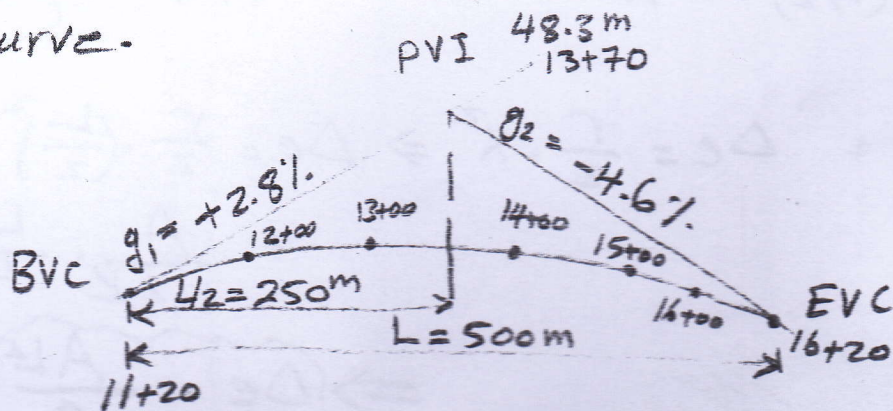 urve.
PVI
48.3 m
13+70
g₁ = +2.8%
g₂ =
-4.6%
12+00
13+00
14+00
15+00
16+00
BVC
L/2 = 250m
L = 500m
EVC
11+20
16+20